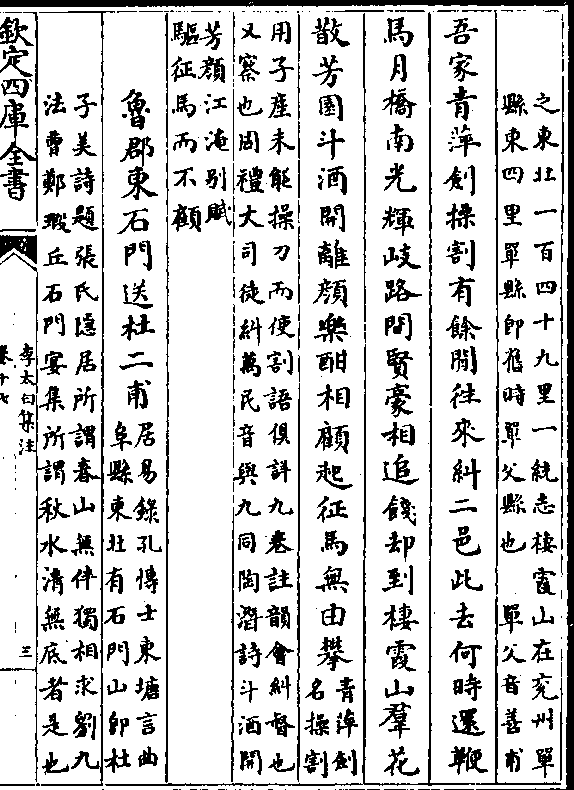 之東北一百四十九里一統志棲霞山在兖州單
縣東四里單縣即舊時單父縣也 單父音善甫
吾家青萍劍操割有餘閒往來糾二邑此去何時還鞭
馬月橋南光輝岐路間賢豪相追餞却到棲霞山羣花
散芳園斗酒開離顔樂酣相顧起征馬無由攀青萍劍
名操割
用子產未能操刀而使割語俱詳九卷註韻會糾督也
又察也周禮大司徒糾萬民音與九同陶潛詩斗酒開
芳顔江淹别賦
驅征馬而不顧
魯郡東石門送杜二甫居易錄孔博士東塘言曲
阜縣東北有石門山即杜
子美詩題張氏隱居所謂春山無伴獨相求劉九
法曹鄭瑕丘石門宴集所謂秋水清無底者是也
欽定四庫全書
李太白集注
卷十七
三